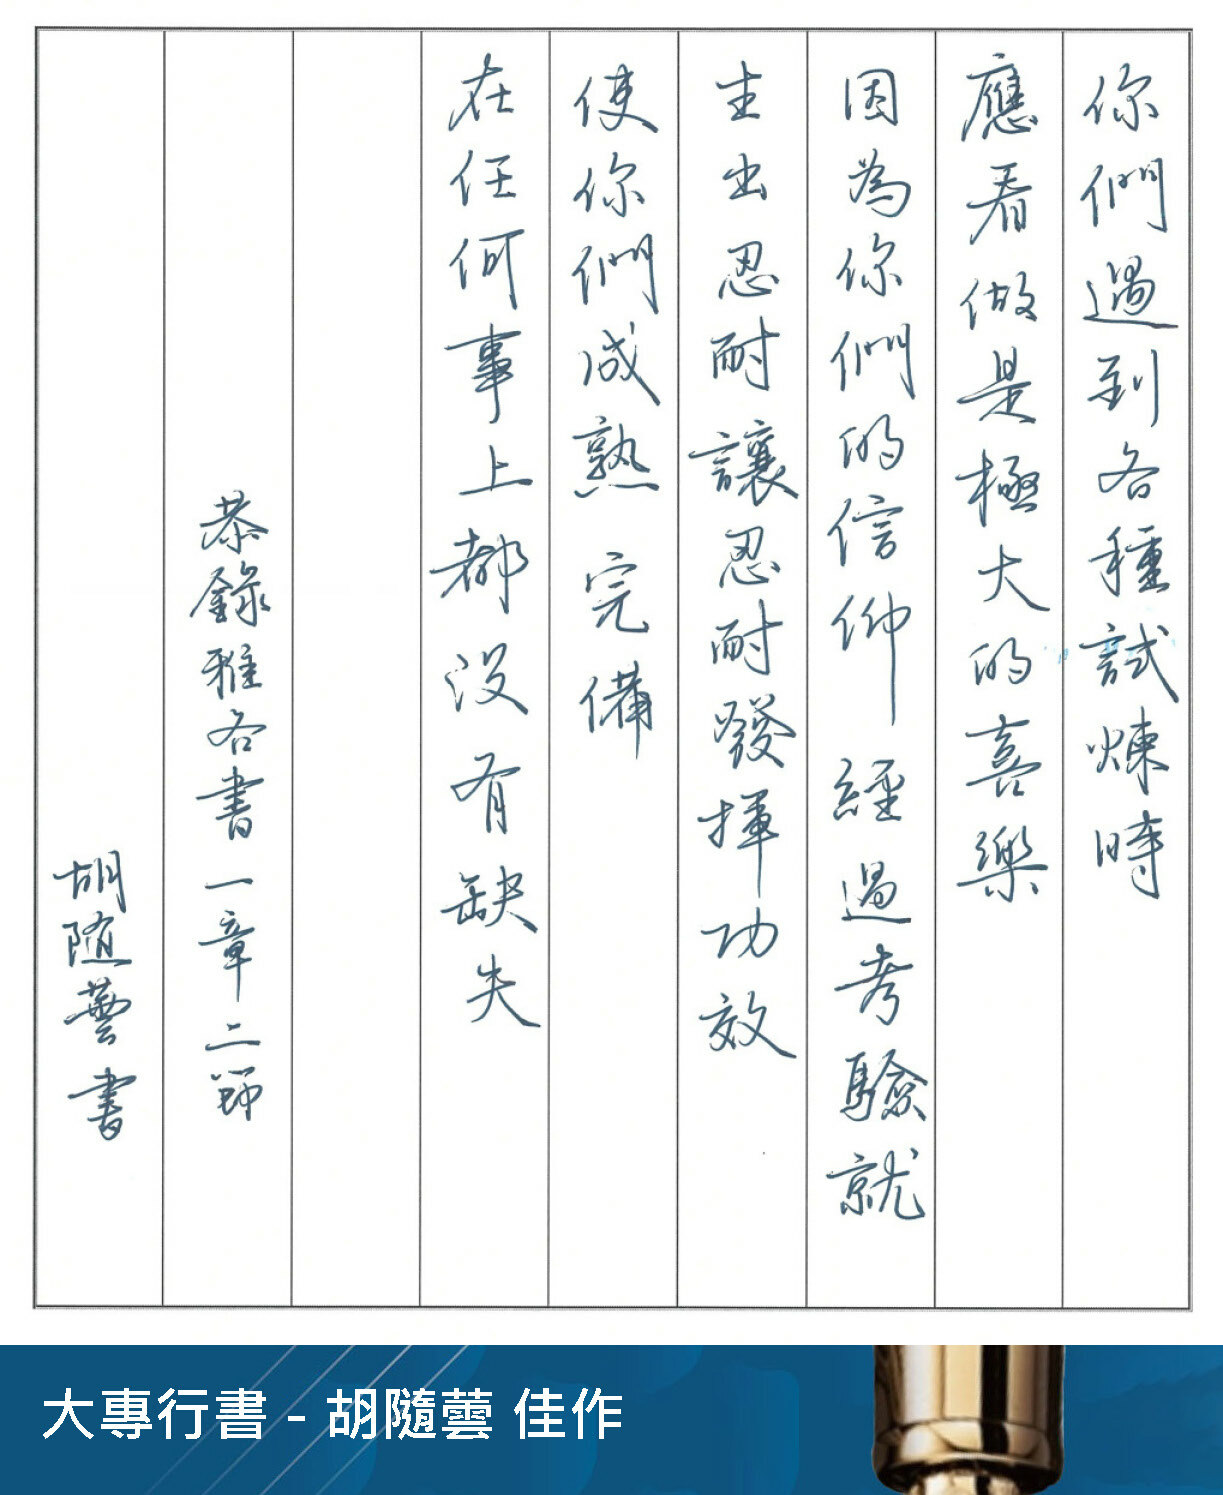 你們遇到各種試煉時
應看做是極大的喜樂
因為你們的信仰經過考驗就
生出忍耐讓忍耐發揮功效
使你們成熟完備
在任何事上都沒有缺失
恭錄雅各書一章二節
胡隨蕓書
大專行書 - 胡隨蕓 佳作